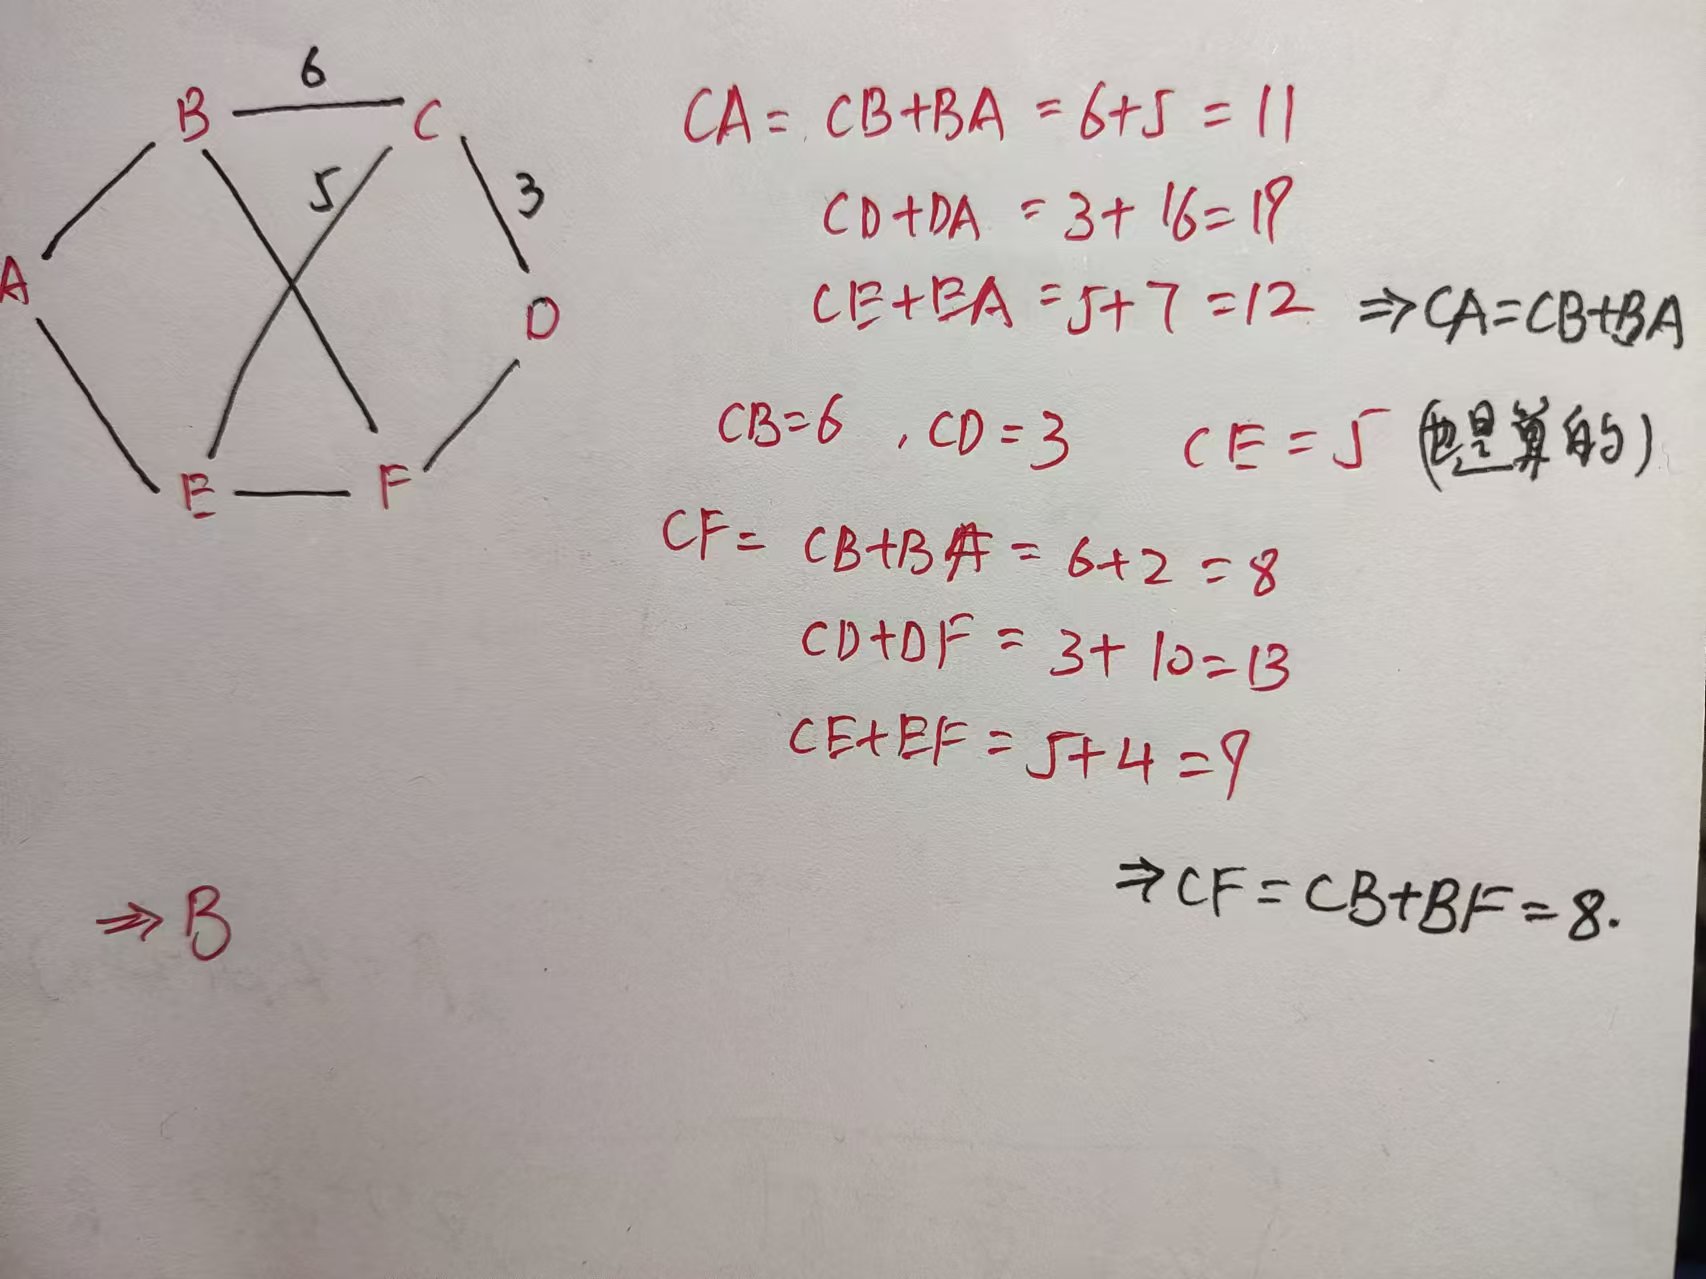 6
B
C
5
3
A
D
E
F
CA = CB+BA = 6+5 = 11
CD+DA = 3+16=19
CE+EA =5+7=12 ⇒CA=CB+BA
CB=6 , CD=3 CE=5 (也是算的)
CF= CB+BF = 6+2 =8
CD+DF = 3+10=13
CE+EF = 5+4=9
⇒CF=CB+BF=8.
⇒B